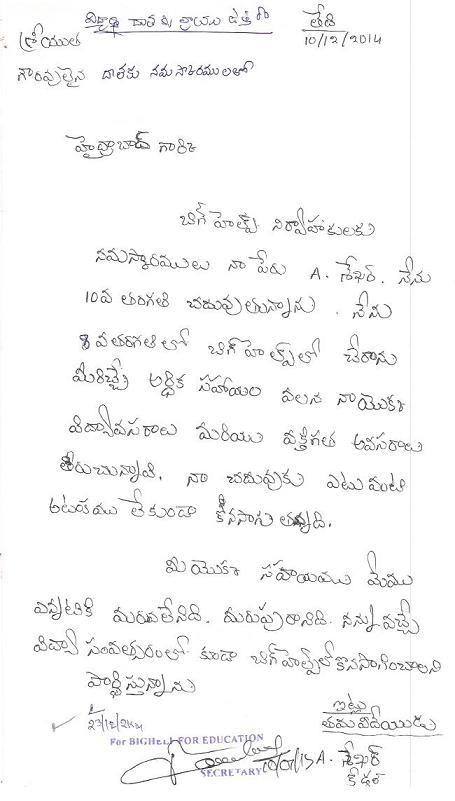 విద్యార్థి దాతకు వ్రాయు ఉత్తరం
తేది
10/12/2014
శ్రీయుత
గౌరవులైన దాతకు నమస్కారములతో
హైద్రాబాద్ గారికి
బిగ్ హెల్ప్ నిర్వాహకులకు
నమస్కారములు నా పేరు A. శేఖర్. నేను
10వ తరగతి చదువుతున్నాను. నేను
8వతరగతిలో బిగ్ హెల్ప్ లో చేరాను
మీరిచ్చే ఆర్ధిక సహాయం వలన నాయొక్క
విద్యావసరాలు మరియు వ్యక్తిగత అవసరాలు
తీరుచున్నావి. నా చదువుకు ఎటువంటి
ఆటంకము లేకుండా కొనసాగుతున్నది.
మీ యొక్క సహాయము మేము
ఎన్నటికి మరువలేనిది. మరుపురానిది. నన్ను వచ్చే
విద్యా సంవత్సరంలో కూడా బిగ్ హెల్ప్ లోకొనసాగించాలని
ప్రార్థిస్తున్నాను
ఇట్లు
తమ విధేయుడు
A. శేఖర్
For BIGHELP FOR EDUCATION
SECRETARY